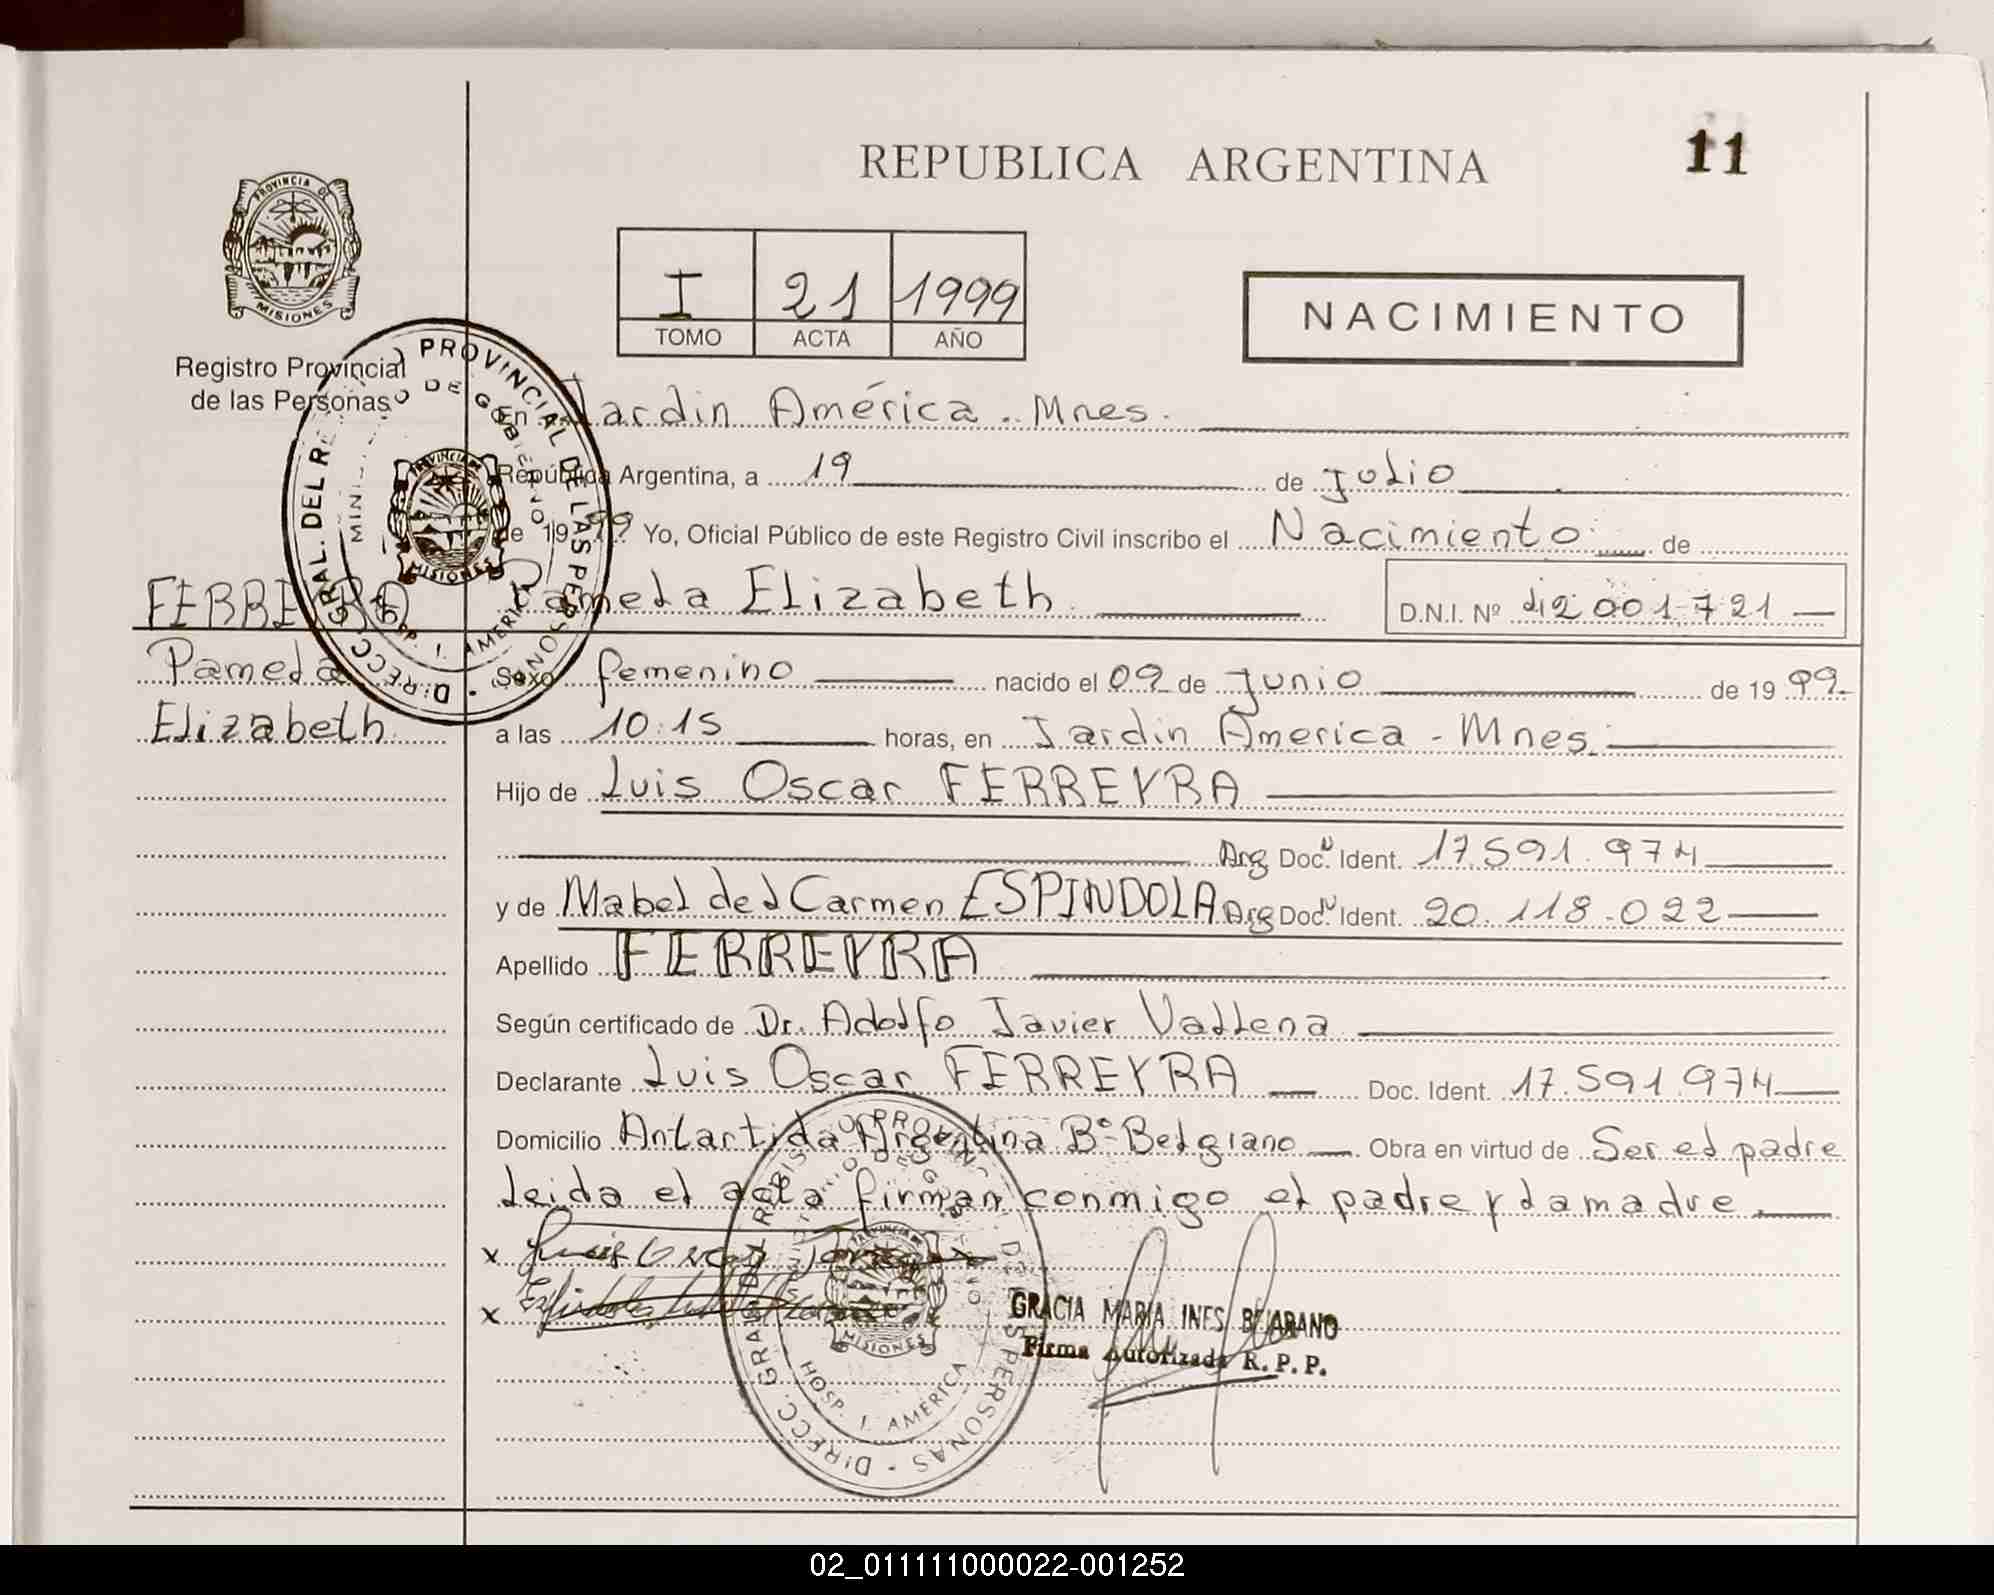 11
REPUBLICA ARGENTINA
PROVINCIA DE
MISIONES
Registro Provincial
de las Personas
I 21 1999
TOMO ACTA AÑO
NACIMIENTO
DIRECC. GRAL. DEL REG PROVINCIAL DE LAS PERSONAS
MINIS O DE GOBIERNO
HOSP. J. AMERICA
PROVINCIA DE
MISIONES
En Jardin América - Mnes.
República Argentina, a 19 de Julio
de 1999 Yo, Oficial Público de este Registro Civil inscribo el Nacimiento de
FERREYRA
Pamela Elizabeth D.N.I. Nº 42 001 721
Pamela
Elizabeth
Sexo femenino nacido el 09 de Junio de 1999
a las 10:15 horas, en Jardin America - Mnes.
Hijo de Luis Oscar FERREYRA
Arg Doc. Ident. 17.591.974
y de Mabel del Carmen ESPINDOLA Arg Doc. Ident. 20.118.022
Apellido FERREYRA
Según certificado de Dr. Adolfo Javier
Declarante Luis Oscar FERREYRA Doc. Ident. 17.591.974
Domicilio Antartida Argentina Bº Belgrano Obra en virtud de Ser el padre
Leida el acta firman conmigo el padre y la madre
x Luis Oscar
x
DIRECC. GRAL. DEL REGIS O PROVINC DE LAS PERSONAS
HOSP. J. AMÉRICA
MISIONES
GRACIA MARIA INES BEJARANO
Firma Autorizada R. P. P.
02_011111000022-001252